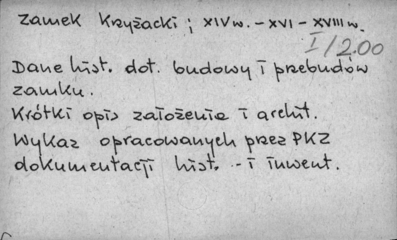 Zamek Krzyżacki ; XIV w. – XVI – XVIII w.
I/200
Dane hist. dot. budowy i przebudów
zamku.
Krótki opis założenia i archit.
Wykaz opracowanych przez PKZ
dokumentacji hist. - i inwent.